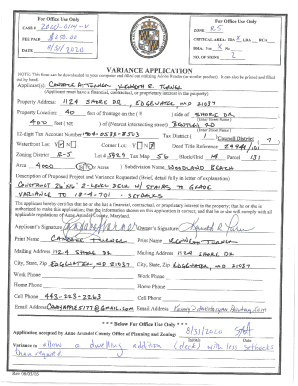 For Office Use Only
CASE # 2020-0114-V
FEE PAID $150.00
DATE 8/31/2020
For Office Use Only
ZONE R5
CRITICAL AREA: IDA LDA RCA
BMA: Yes No
NO. OF SIGNS 2
VARIANCE APPLICATION
Applicant(s): Candace A. Turner Kennon R. Turner
(Applicant must have a financial, contractual, or proprietary interest in the property)
Property Address: 1124 Shore DR Edgewater MD 21037
Property Location: 40 feet of frontage on the side of Shore DR
400 feet of (Nearest intersecting street)
12-digit Tax Account Number Tax District 1 Council District 7
Waterfront Lot: Y N Corner Lot: Y N Deed Title Reference
Zoning District R-5 Lot # Tax Map 56 Block/Grid 19 Parcel 131
Area 4000 (Sq Ft or Acres) Subdivision Name Woodland Beach
Description of Proposed Project and Variance Requested (Brief, detail fully in letter of explanation)
Construct 2-level deck w/ stairs to grade
Variance to 18-4-701 - setbacks
The applicant hereby certifies that he or she has a financial, contractual, or proprietary interest in the property; that he or she is
authorized to make this application; that the information shown on this application is correct; and that he or she will comply with all
applicable regulations of Anne Arundel County, Maryland.
Applicant's Signature Owner's Signature
Print Name Candace Turner Print Name
Mailing Address 1124 Shore DR Mailing Address 1124 Shore DR
City, State, Zip Edgewater, MD 21037 City, State, Zip Edgewater, MD 21037
Work Phone Work Phone
Home Phone Home Phone
Cell Phone 443-223-2263 Cell Phone
Email Address Email Address
*** Below For Office Use Only ***
Application accepted by Anne Arundel County Office of Planning and Zoning: 8/31/2020
Initials Date
Variance to allow a dwelling addition (deck) with less setbacks
than required